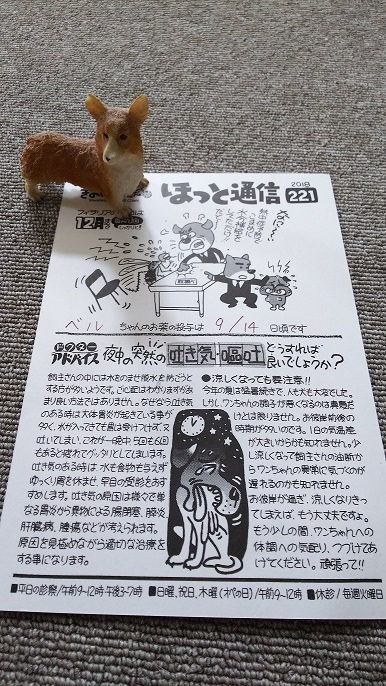 ほっと通信
2018
221
12月まで
ベル ちゃんのお薬の投与は 9/14 日頃です
ドクターアドバイス
夜中の突然の吐き気・嘔吐どうすれば良いでしょうか?
飼主さんの中には水をのませ脱水を防ごうと
する方がいるようです。ご心配はわかりますが、あ
まり良い方法ではありません。なぜなら吐き気
のある時は大体胃炎が起きている事が
多く、水が入ってきても胃は受けつけず、又
吐いてしまい、これが一晩中5回も6回
もあると疲れてグッタリとしてしまいます。
吐き気のある時は水も食物も与えず
ゆっくり胃を休ませ、早目の受診をおす
すめします。吐き気の原因は様々で単
なる胃炎から異物による腸閉塞、膵炎
肝臓病、腫瘍などが考えられます。
原因を見極めながら適切な治療を
する事になります。
●涼しくなっても要注意!!
今年の夏は酷暑続きで、人も犬も大変でした。
しかし、ワンちゃんの調子が悪くなるのは真夏だ
けとは限りません。お彼岸前後の
時期が多いのです。1日の気温差
が大きいからかもしれません。少
し涼しくなって飼主さんの油断から
ワンちゃんの異常に気づくのが
遅れるのかも知れません。
お彼岸が過ぎ、涼しくなりきっ
てしまえば、もう大丈夫ですよ。
もう少しの間、ワンちゃんへの
体調への気配り、つづけてあ
げてください。頑張って!!
■平日の診察/午前9~12時 午後3~7時 ■日曜、祝日、木曜(オペの日)/午前9~12時 ■休診/毎週火曜日